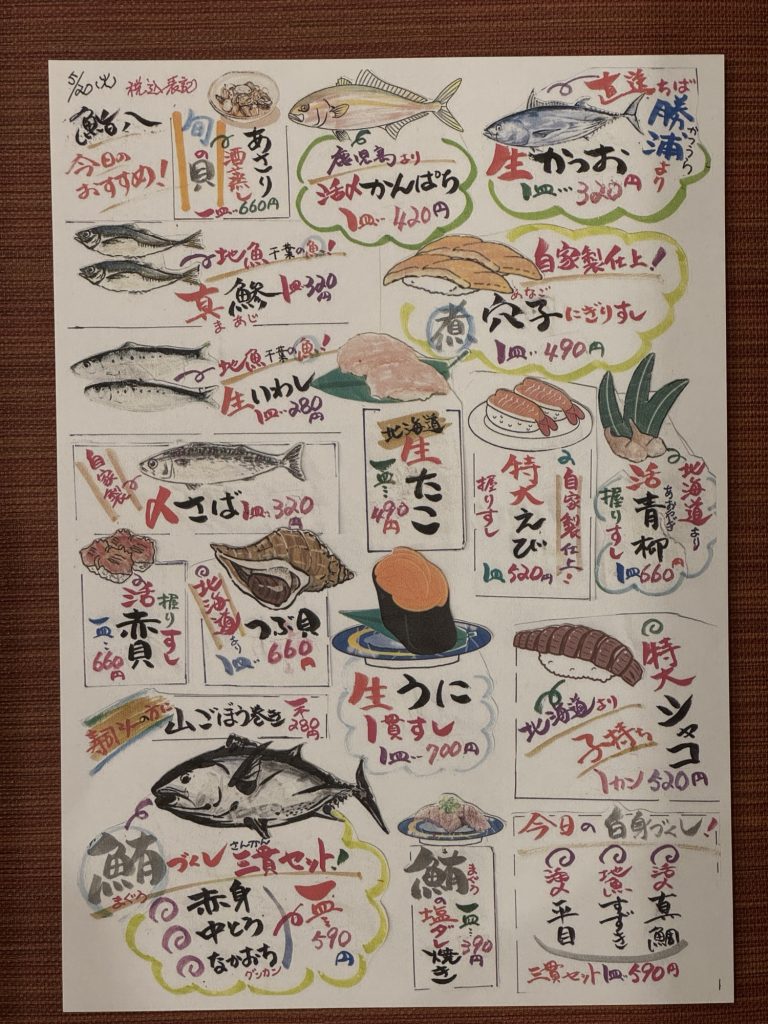 5/20(火) 税込表記
鮨八
今日の
おすすめ!
旬の貝
あさり
酒蒸し
一皿…660円
鹿児島より
活〆かんぱち
1皿…420円
直送ちば
勝浦より
かつうら
生かつお
1皿…320円
地魚千葉の魚!
真鯵 1皿320円
まあじ
自家製仕上!
煮穴子にぎりすし
あなご
1皿…490円
地魚千葉の魚!
生いわし
1皿…280円
北海道
生たこ
一皿…490円
自家製仕上!
特大えび
握りすし
1皿520円
北海道より
活青柳
あおやぎ
握りすし
1皿660円
自家製
〆さば 1皿…320円
握りすし
活赤貝
一皿…660円
北海道より
つぶ貝
1皿…660円
生うに
1貫すし
1皿…700円
特大シャコ
北海道より
子持ち
1カン520円
寿司〆の前に
山ごぼう巻き 一本280円
鮪づくし三貫セット!
まぐろ
さんかん
赤身
中とろ
なかおち
グンカン
一皿…590円
鮪の塩ダレ焼き
まぐろ
一皿…390円
今日の白身づくし!
活〆真鯛
地魚すずき
活〆平目
三貫セット1皿…590円